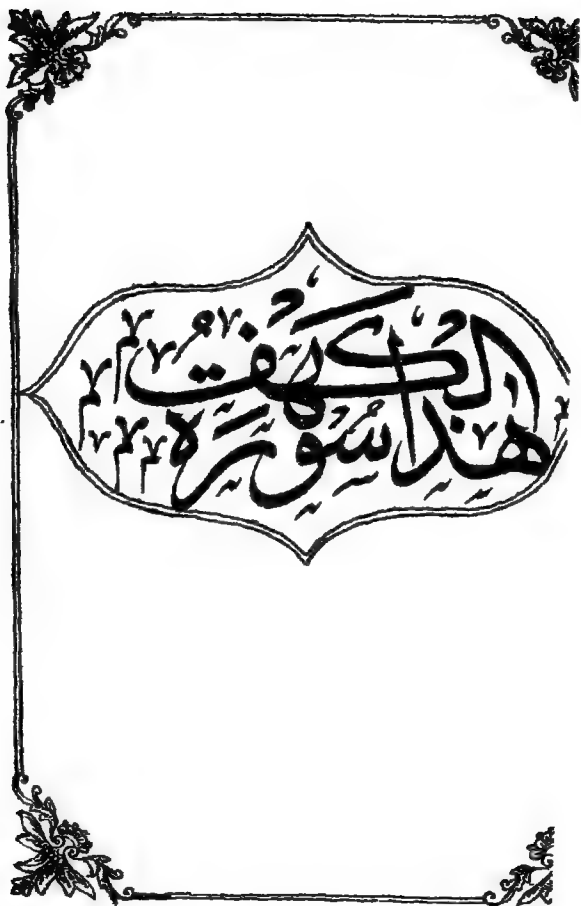 هذا سورة الكهف